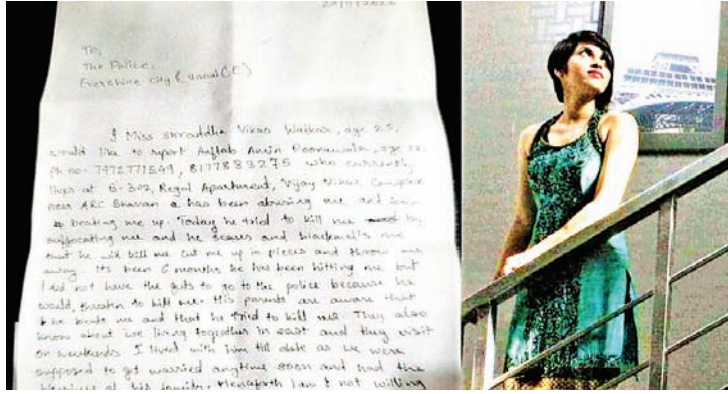 To,
The Police,
Evershine City
I Miss Shraddha Vikas Walkar, age 25,
would like to report Aaftab Amin Poonawala, age
ph no- who currently
lives at B-302, Regal Apartment, Vijay Vihar Complex
near ARC Bhavan has been abusing me and
beating me up. Today he tried to kill me by
suffocating me and he scares and blackmails me
that he will kill me cut me up in pieces and throw me
away. Its been 6 months he has been hitting me but
I did not have the guts to go to the police because he
would threaten to kill me. His parents are aware that
he beats me and that he tried to kill me. They also
know about we living together in and they visit
on weekends. I lived with him till date as we were
supposed to get married anytime soon and had the
blessings of his family. Henceforth I am not willing